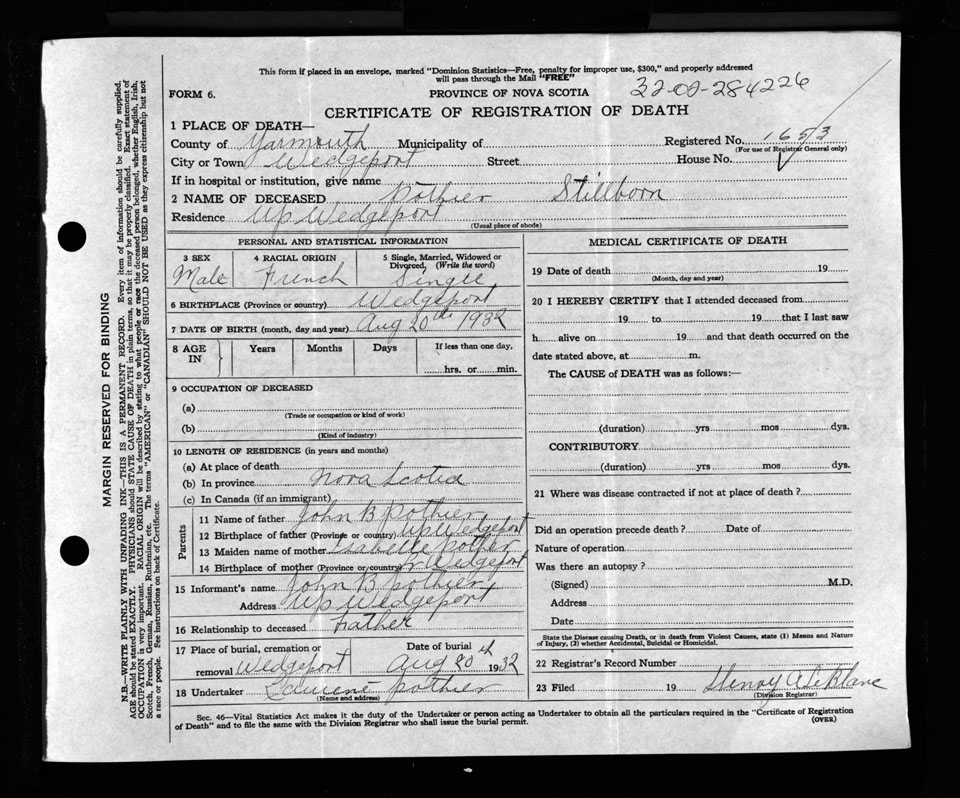 This form if placed in an envelope, marked "Dominion Statistics—Free, penalty for improper use, $300," and properly addressed
will pass through the Mail "FREE"
FORM 6.
PROVINCE OF NOVA SCOTIA
32-02-284226
CERTIFICATE OF REGISTRATION OF DEATH
1 PLACE OF DEATH—
County of Yarmouth Municipality of Registered No. 1653
(For use of Registrar General only)
City or Town Wedgeport Street House No.
If in hospital or institution, give name
2 NAME OF DECEASED Pothier Stillborn
Residence Up Wedgeport
(Usual place of abode)
PERSONAL AND STATISTICAL INFORMATION
3 SEX
Male
4 RACIAL ORIGIN
French
5 Single, Married, Widowed or
Divorced, (Write the word)
Single
6 BIRTHPLACE (Province or country) Wedgeport
7 DATE OF BIRTH (month, day and year) Aug 20th 1932
8 AGE IN
Years Months Days If less than one day,
hrs. or min.
9 OCCUPATION OF DECEASED
(a)
(Trade or occupation or kind of work)
(b)
(Kind of industry)
10 LENGTH OF RESIDENCE (in years and months)
(a) At place of death
(b) In province Nova Scotia
(c) In Canada (if an immigrant)
Parents
11 Name of father John B Pothier
12 Birthplace of father (Province or country) Up Wedgeport
13 Maiden name of mother Isabelle Pothier
14 Birthplace of mother (Province or country) Wedgeport
15 Informant's name John B Pothier
Address Up Wedgeport
16 Relationship to deceased Father
17 Place of burial, cremation or
removal Wedgeport
Date of burial
Aug 20 1932
18 Undertaker Pothier
(Name and address)
MEDICAL CERTIFICATE OF DEATH
19 Date of death 19
(Month, day and year)
20 I HEREBY CERTIFY that I attended deceased from
19 to 19 that I last saw
h alive on 19 and that death occurred on the
date stated above, at m.
The CAUSE of DEATH was as follows:—
(duration) yrs mos dys.
CONTRIBUTORY
(duration) yrs. mos. dys.
21 Where was disease contracted if not at place of death?
Did an operation precede death? Date of
Nature of operation
Was there an autopsy?
(Signed) M.D.
Address
Date
State the Disease causing Death, or in death from Violent Causes, state (1) Means and Nature
of Injury, (2) whether Accidental, Suicidal or Homicidal.
22 Registrar's Record Number
23 Filed 19 Henry A LeBlanc
(Division Registrar)
Sec. 46—Vital Statistics Act makes it the duty of the Undertaker or person acting as Undertaker to obtain all the particulars required in the "Certificate of Registration
of Death" and to file the same with the Division Registrar who shall issue the burial permit.
(OVER)
MARGIN RESERVED FOR BINDING
N.B.—WRITE PLAINLY WITH UNFADING INK—THIS IS A PERMANENT RECORD. Every item of information should be carefully supplied.
AGE should be stated EXACTLY. PHYSICIANS should STATE CAUSE OF DEATH in plain terms, so that it may be properly classified. Exact statement of
OCCUPATION is very important. RACIAL ORIGIN will be described by stating to what people or race the deceased person belonged, whether English, Irish,
Scotch, French, German, Russian, Ruthenian, etc. The terms "AMERICAN" or "CANADIAN" SHOULD NOT BE USED as they express citizenship but not
a race or people. See instructions on back of Certificate.